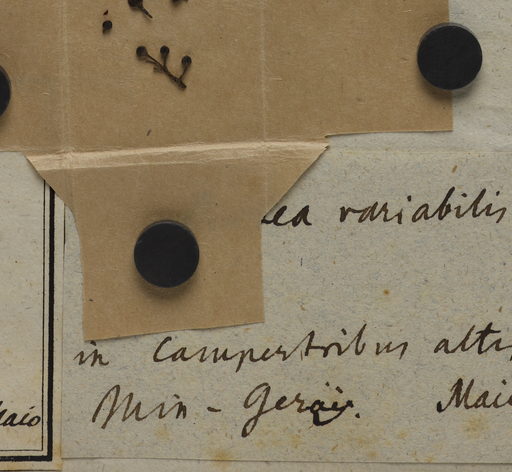 ea variabilis
in campestribus alti
Min - Geräis. Maio
Maio